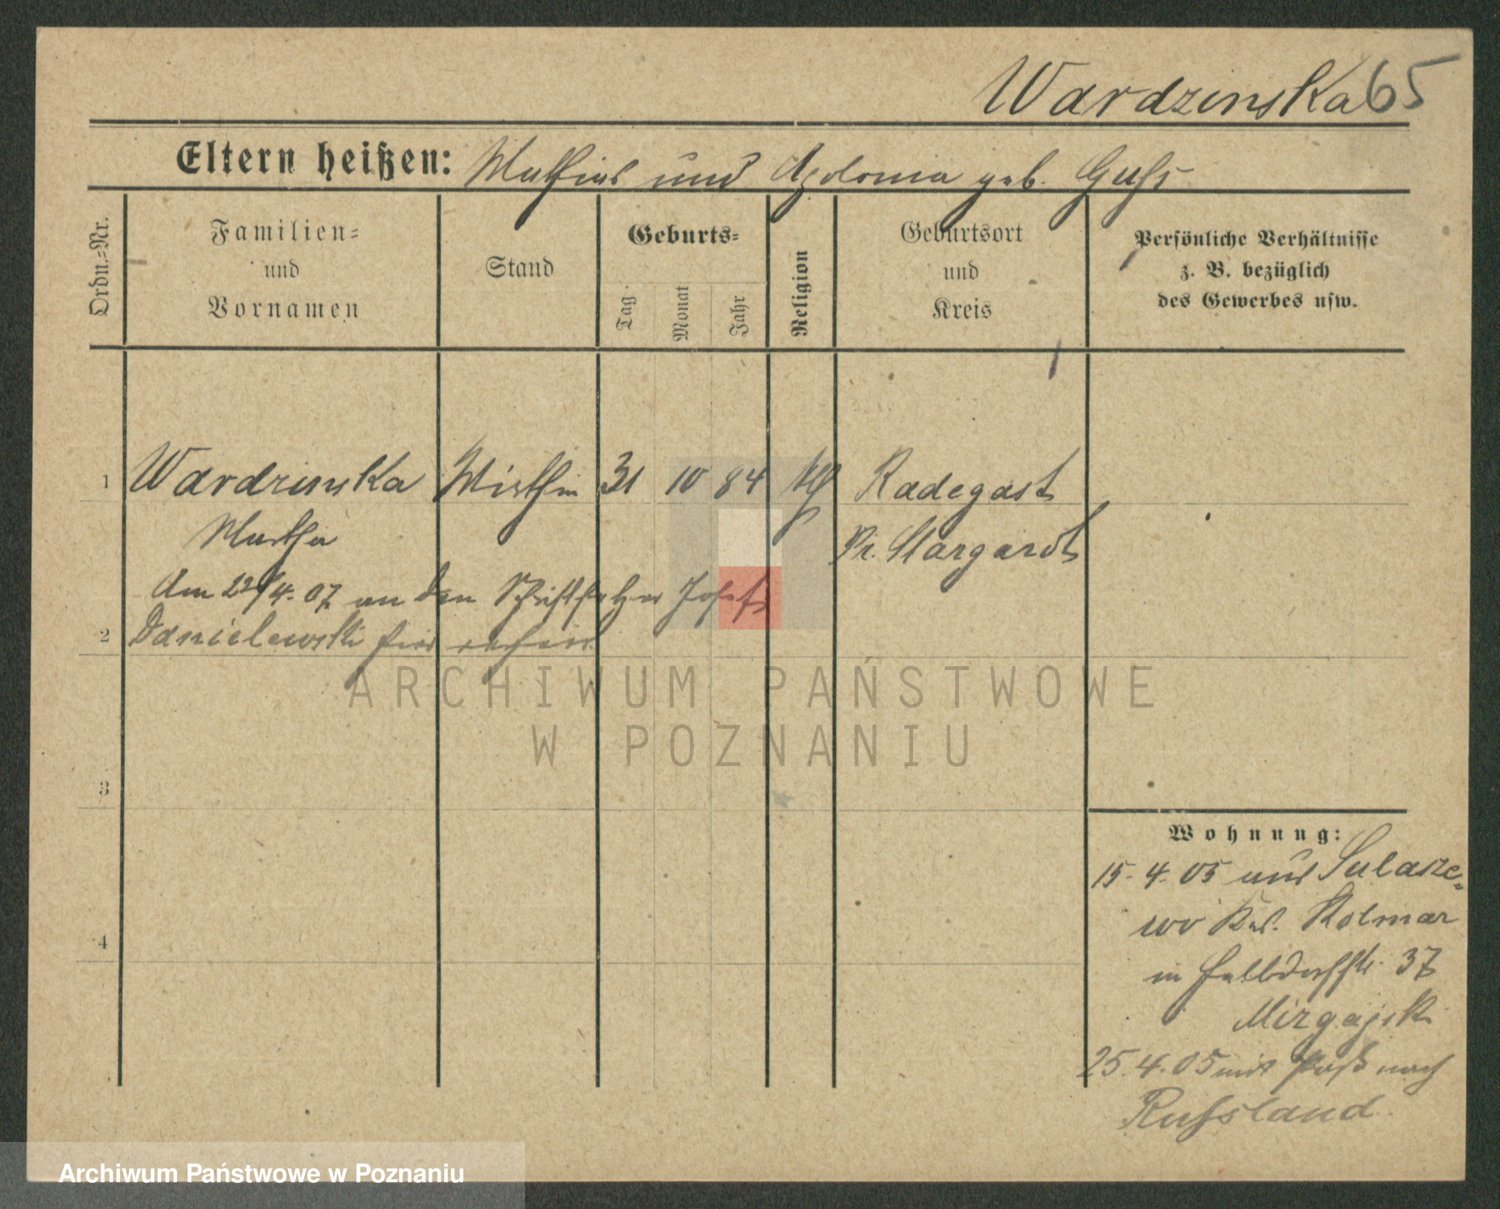 Wardzinska 65
Eltern heißen: Mathias und Apolonia geb. Guss
Ordn.-Nr.
Familien-
und
Vornamen
Stand
Geburts-
Tag
Monat
Jahr
Religion
Geburtsort
und
Kreis
Persönliche Verhältnisse
z. B. bezüglich
des Gewerbes usw.
1 Wardzinska Wirthin 31 10 84 Radegast
Martha Pr. Stargardt
Am 22/4. 07 an den Schriftsetzer Josef
2 Danielewski hier
3
4
Wohnung:
15. 4. 05 aus Sulasze-
wo Krs. Kolmar
in Halbdorfstr. 37
Mizgajsk
25. 4. 05 mit Paß nach
Russland
ARCHIWUM PAŃSTWOWE
W POZNANIU
Archiwum Państwowe w Poznaniu